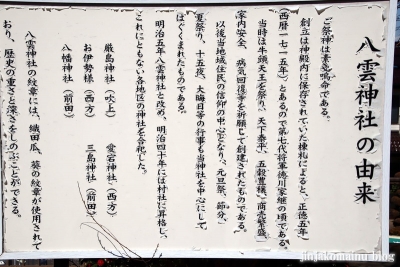 八雲神社の由来
ご祭神は素戔嗚命である。
創立は神殿内に保存されていた棟札によると、正徳五年
(西暦一七一五年)とあるので第七代将軍徳川家継の頃である。
当時は牛頭天王を祭り、天下泰平、五穀豊穣、商売繁盛、
家内安全、病気回復等を祈願して創建されたものである。
以後当地域住民の信仰の中心となり、元旦祭、節分、
夏祭り、十五夜、大晦日等の行事も当神社を中心にして
はぐくまれたものである。
明治五年八雲神社と改め、明治四十年には村社に昇格し、
これにともない各地区の神社を合祀した。
厳島神社(吹上) 愛宕神社(西方)
お伊勢様(西方) 三島神社(前田)
八幡神社(前田)
八雲神社の紋章には、織田瓜、葵の紋章が使用されて
おり、歴史の重さと深さをしのぶことができる。
jinjakomainu.blog